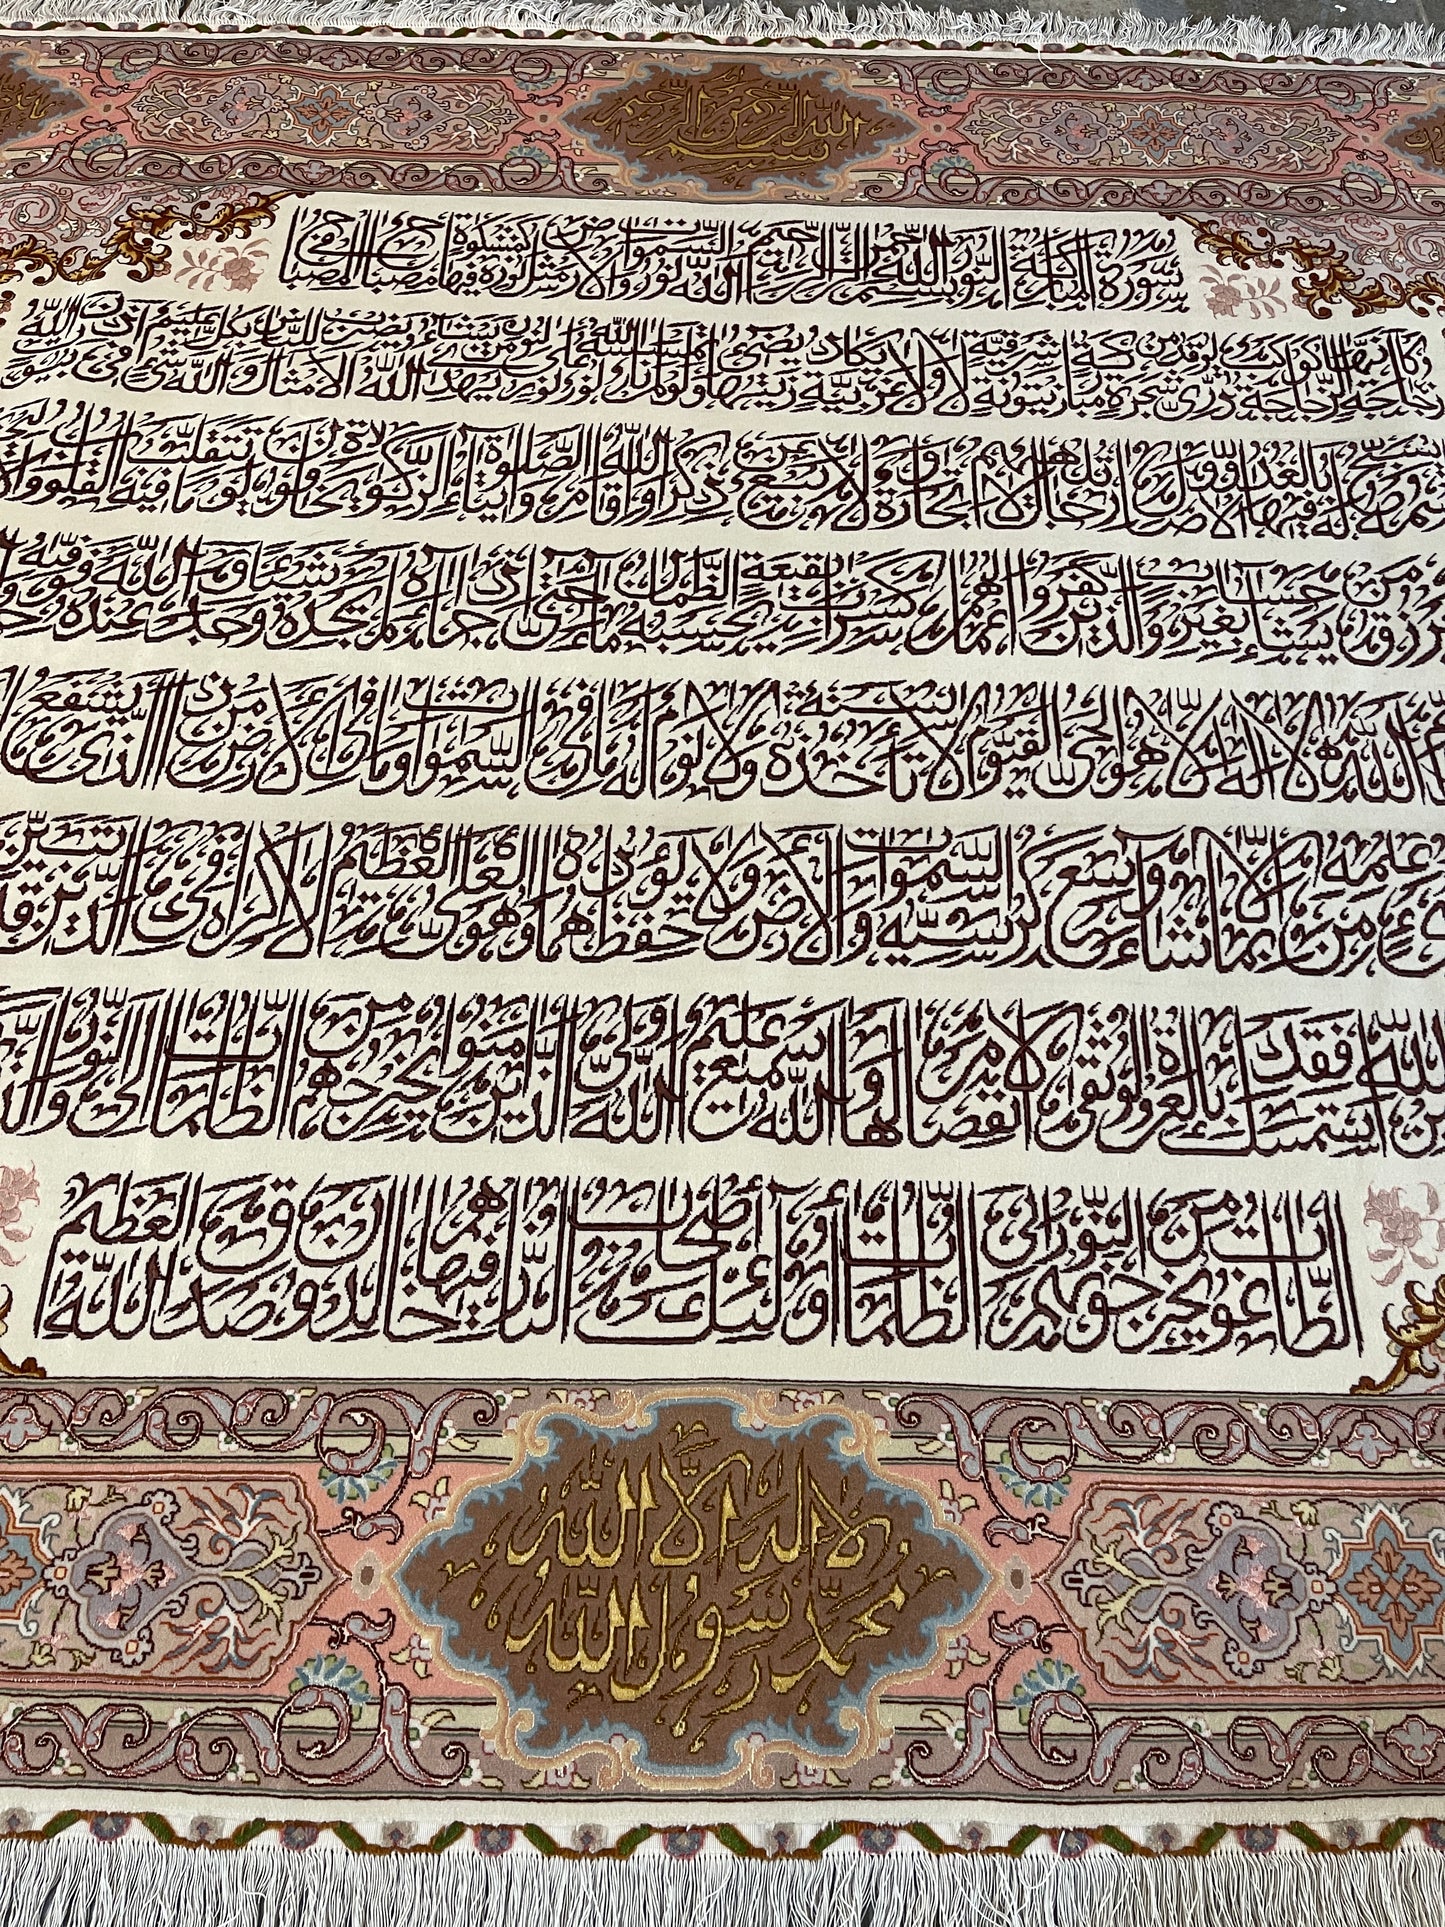 بسم الله الرحمن الرحيم
سورة المباركة النور بسم الله الرحمن الرحيم الله نور السموات والارض مثل نوره كمشكوة فيها مصباح المصباح
زجاجة الزجاجة كأنها كوكب درى يوقد من شجرة مباركة زيتونة لا شرقية ولا غربية يكاد زيتها يضىء ولو لم تمسسه نار نور على نور يهدى الله لنوره من يشاء ويضرب الله الامثال للناس والله بكل شىء عليم فى بيوت اذن الله
اسمه يسبح له فيها بالغدو والاصال رجال لا تلهيهم تجارة ولا بيع عن ذكر الله واقام الصلوة وايتاء الزكوة يخافون يوما تتقلب فيه القلوب
يرزق من يشاء بغير حساب والذين كفروا اعمالهم كسراب بقيعة يحسبه الظمان ماء حتى اذا جاءه لم يجده شيئا ووجد الله عنده فوفيه
الله لا اله الا هو الحى القيوم لا تأخذه سنة ولا نوم له ما فى السموات وما فى الارض من ذا الذى يشفع
من علمه الا بما شاء وسع كرسيه السموات والارض ولا يؤده حفظهما وهو العلى العظيم لا اكراه فى الدين قد تبين
بالله فقد استمسك بالعروة الوثقى لا انفصام لها والله سميع عليم الله ولى الذين امنوا يخرجهم من الظلمات الى النور والذين
الطاغوت يخرجونهم من النور الى الظلمات اولئك اصحاب النار هم فيها خالدون صدق الله العظيم
لا اله الا الله
محمد رسول الله